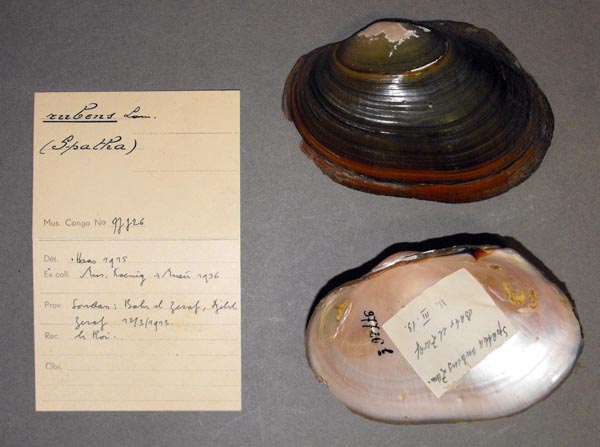 rubens Lam.
(Spatha)
Mus. Congo No
Dét. Haas 1915
Ex coll. Mus. Koenig 1936
Prov. Soudan: Bahr el Zeraf,
Zeraf 12/3/1913.
Rec.
Obs.
Spatha rubens Lam.
Bahr el Zeraf
12. III. 13.